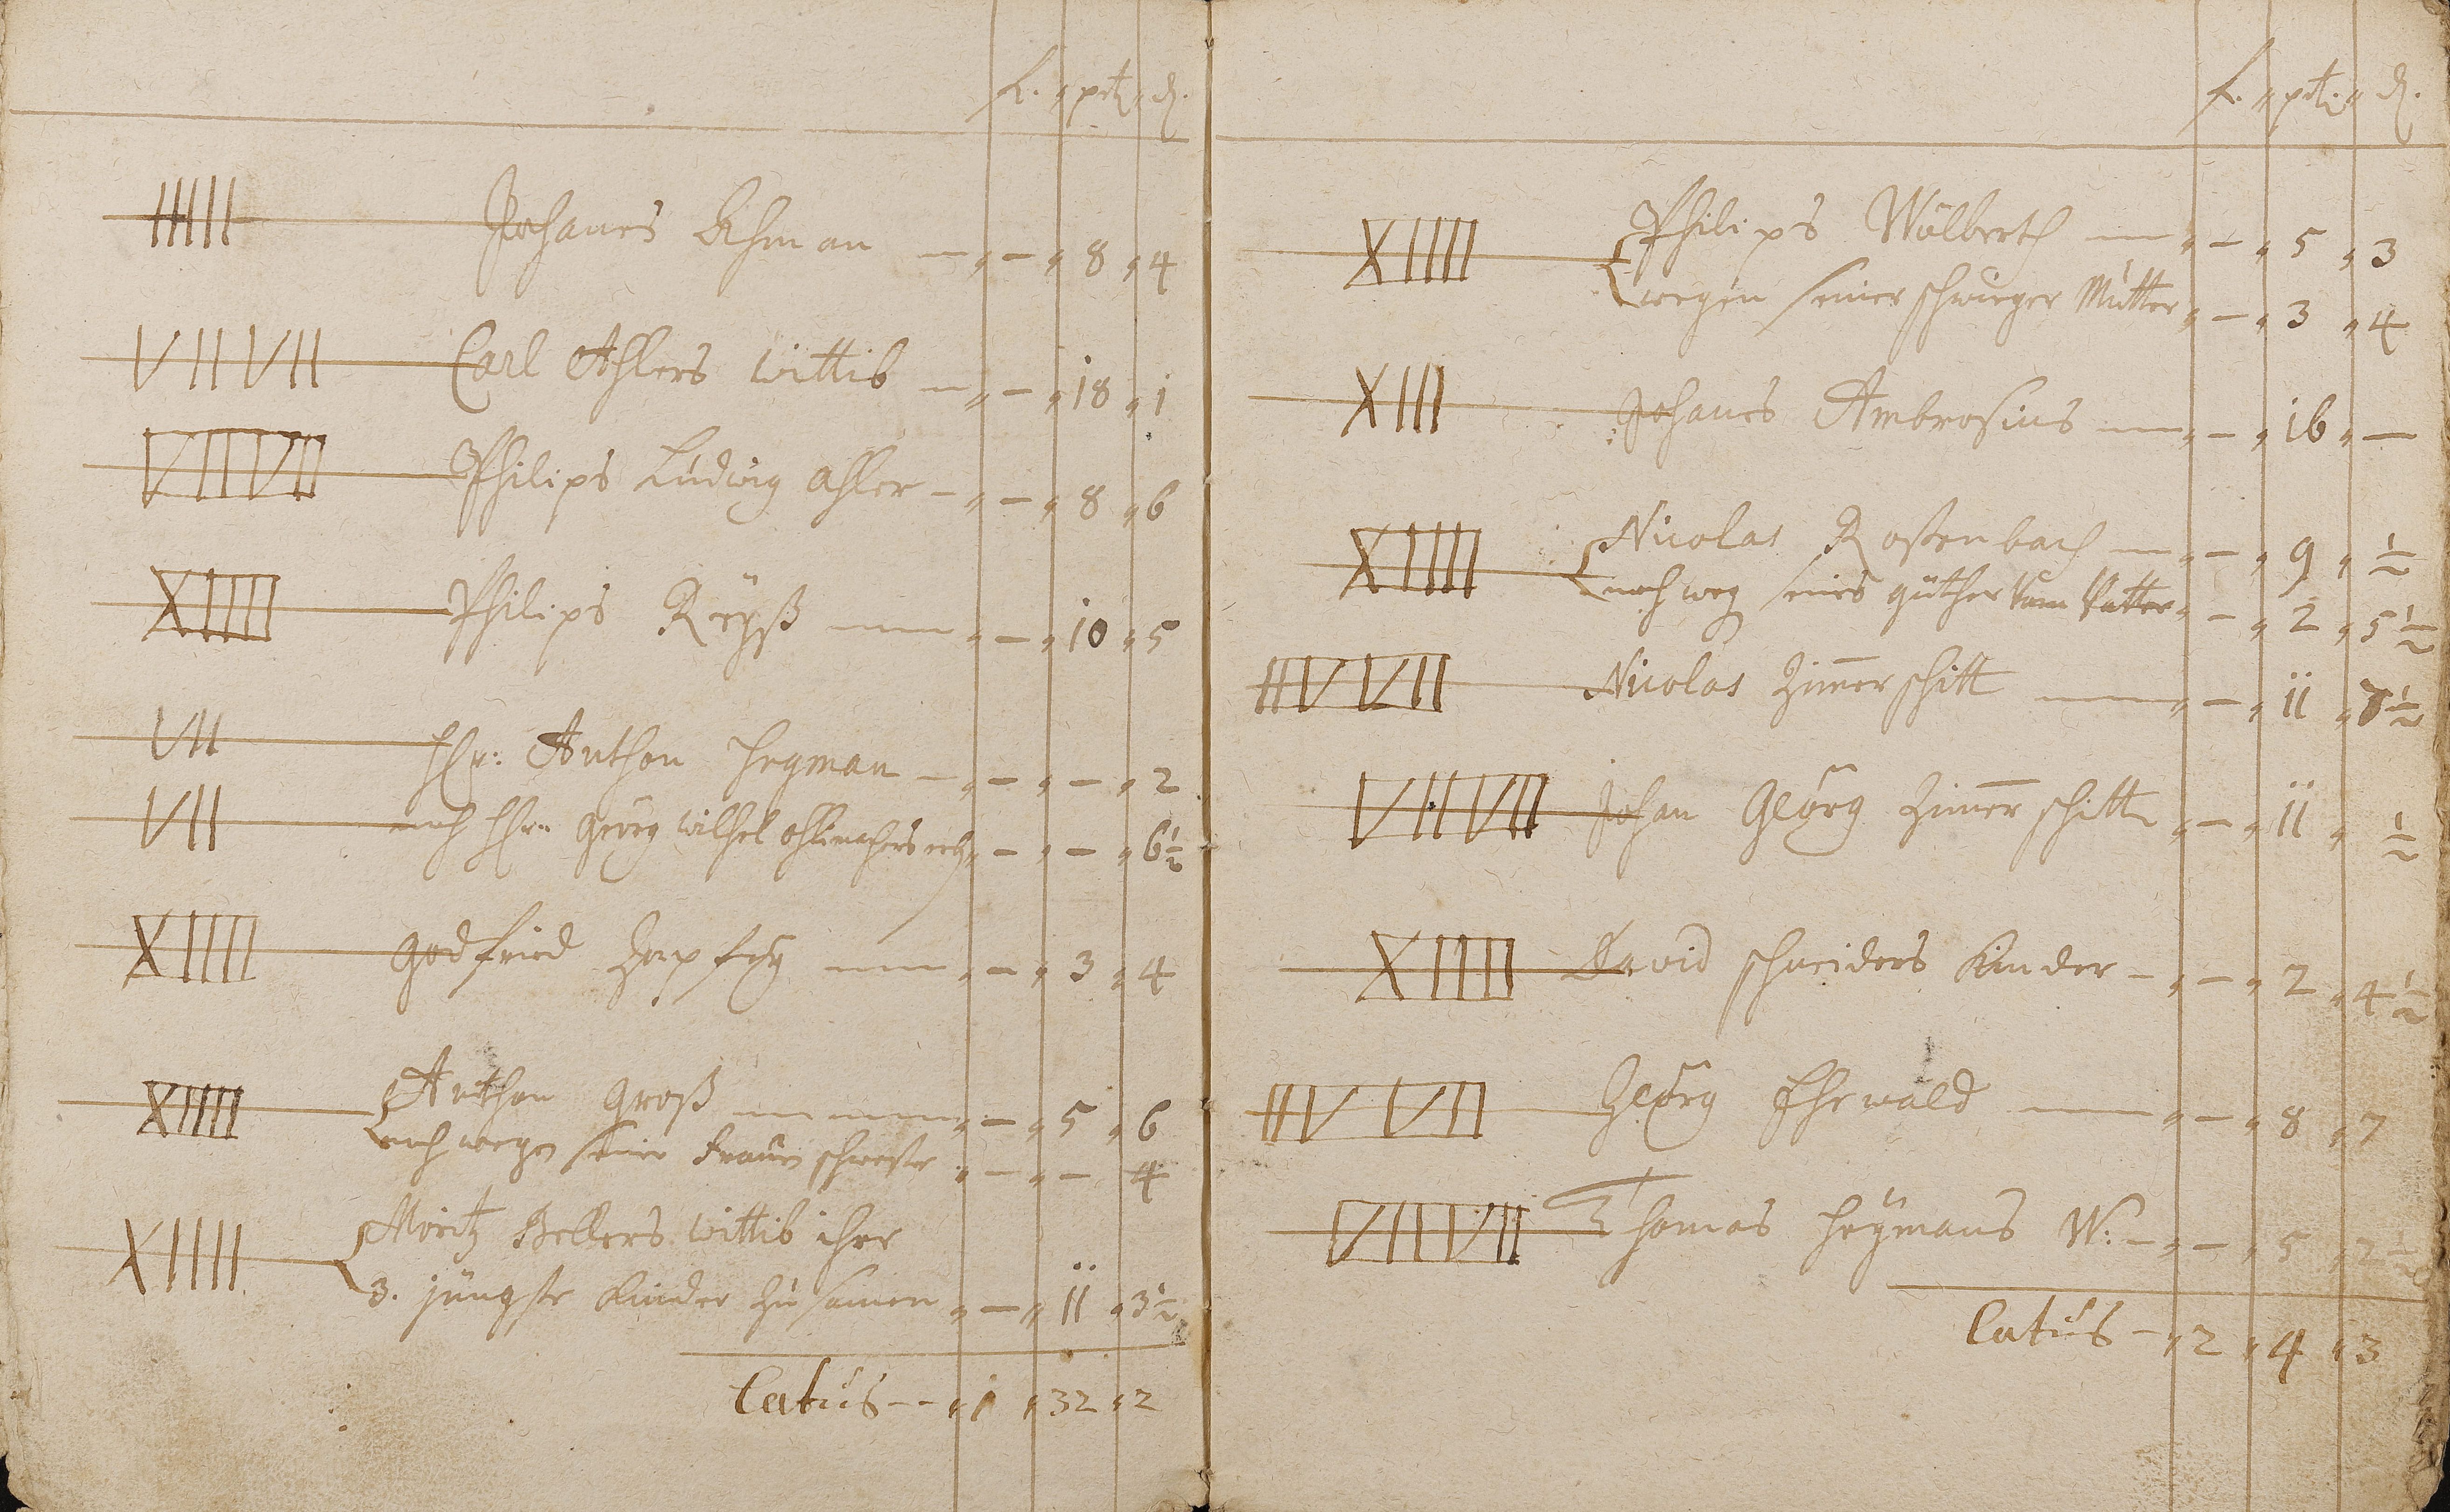 f. " ptz " ₰.
IIIIII Johanes Lehman — " — " 8 " 4
VII VII Carl Ahlers wittib — " — " 18 " 1
VII VII Philips Ludwig Ahler — " — " 8 " 6
XIIII Philips Reÿß — " — " 10 " 5
VII Hr: Anthon Heyman — " — " — " 2
VII noch Hr: Georg Wilhel — " — " 6½
XIIII Godfried Zapfig — " — " 3 " 4
XIIII Anthon Groß — " — " 5 " 6
noch wegen seiner Frauen schwester " — " — 4
XIIII Moritz Bellers wittib ihre
3. jüngste Kinder zu samen " — " 11 " 3½
Latus — " 1 " 32 " 2
f. " ptz. " ₰.
XIIII Philips Wülberth — " — " 5 " 3
wegen seiner schwieger Mutter " — " 3 " 4
XIII Johanes Ambrosius — " — " 16 " —
XIIII Nicolas Roßenbach — " — " 9 " ½
noch weg seines güther Vom Vatter " — " 2 " 5½
IIV VII Nicolas Zimerschitt — " — " 11 " 7½
VII VII Johan Georg Zimerschitt " — " 11 " ½
XIIII David schneiders Kinder — " — " 2 " 4½
IIV VII Georg Ehrwald — " — " 8 " 7
VIII VII Thomas Heÿmans W: — " — " 5 " 2½
Latus — " 2 " 4 " 3